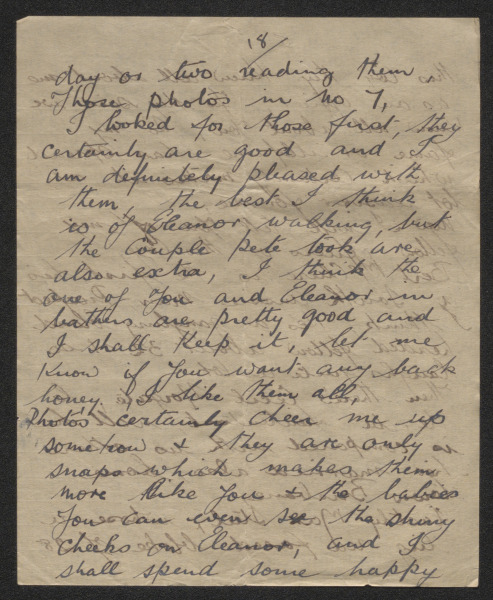 18/
day or two reading them.
Those photos in no 7,
I looked for those first, they
certainly are good and I
am definitely pleased with
them, the best I think
is of Eleanor walking, but
the couple Pete took are
also extra, I think the
one of you and Eleanor in
bathers are pretty good and
I shall keep it, let me
know if you want any back
honey. I like them all,
Photo's certainly cheer me up
somehow & they are only
snaps which makes them
more like you & the babies
You can even see the shiny
cheeks on Eleanor, and I
shall spend some happy